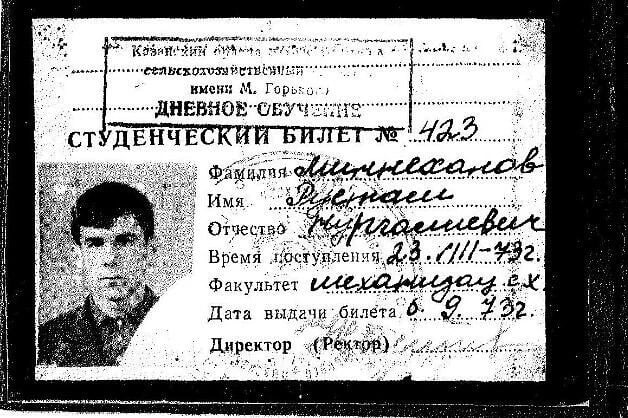 Казанский
сельскохозяйственный
имени М. Горького
ДНЕВНОЕ ОБУЧЕНИЕ
СТУДЕНЧЕСКИЙ БИЛЕТ № 423
Фамилия Миннеханов
Имя Рустам
Отчество Нургалиевич
Время поступления 23.VIII-73г.
Факультет механизац с.х.
Дата выдачи билета 6.9.73г.
Директор (Ректор)